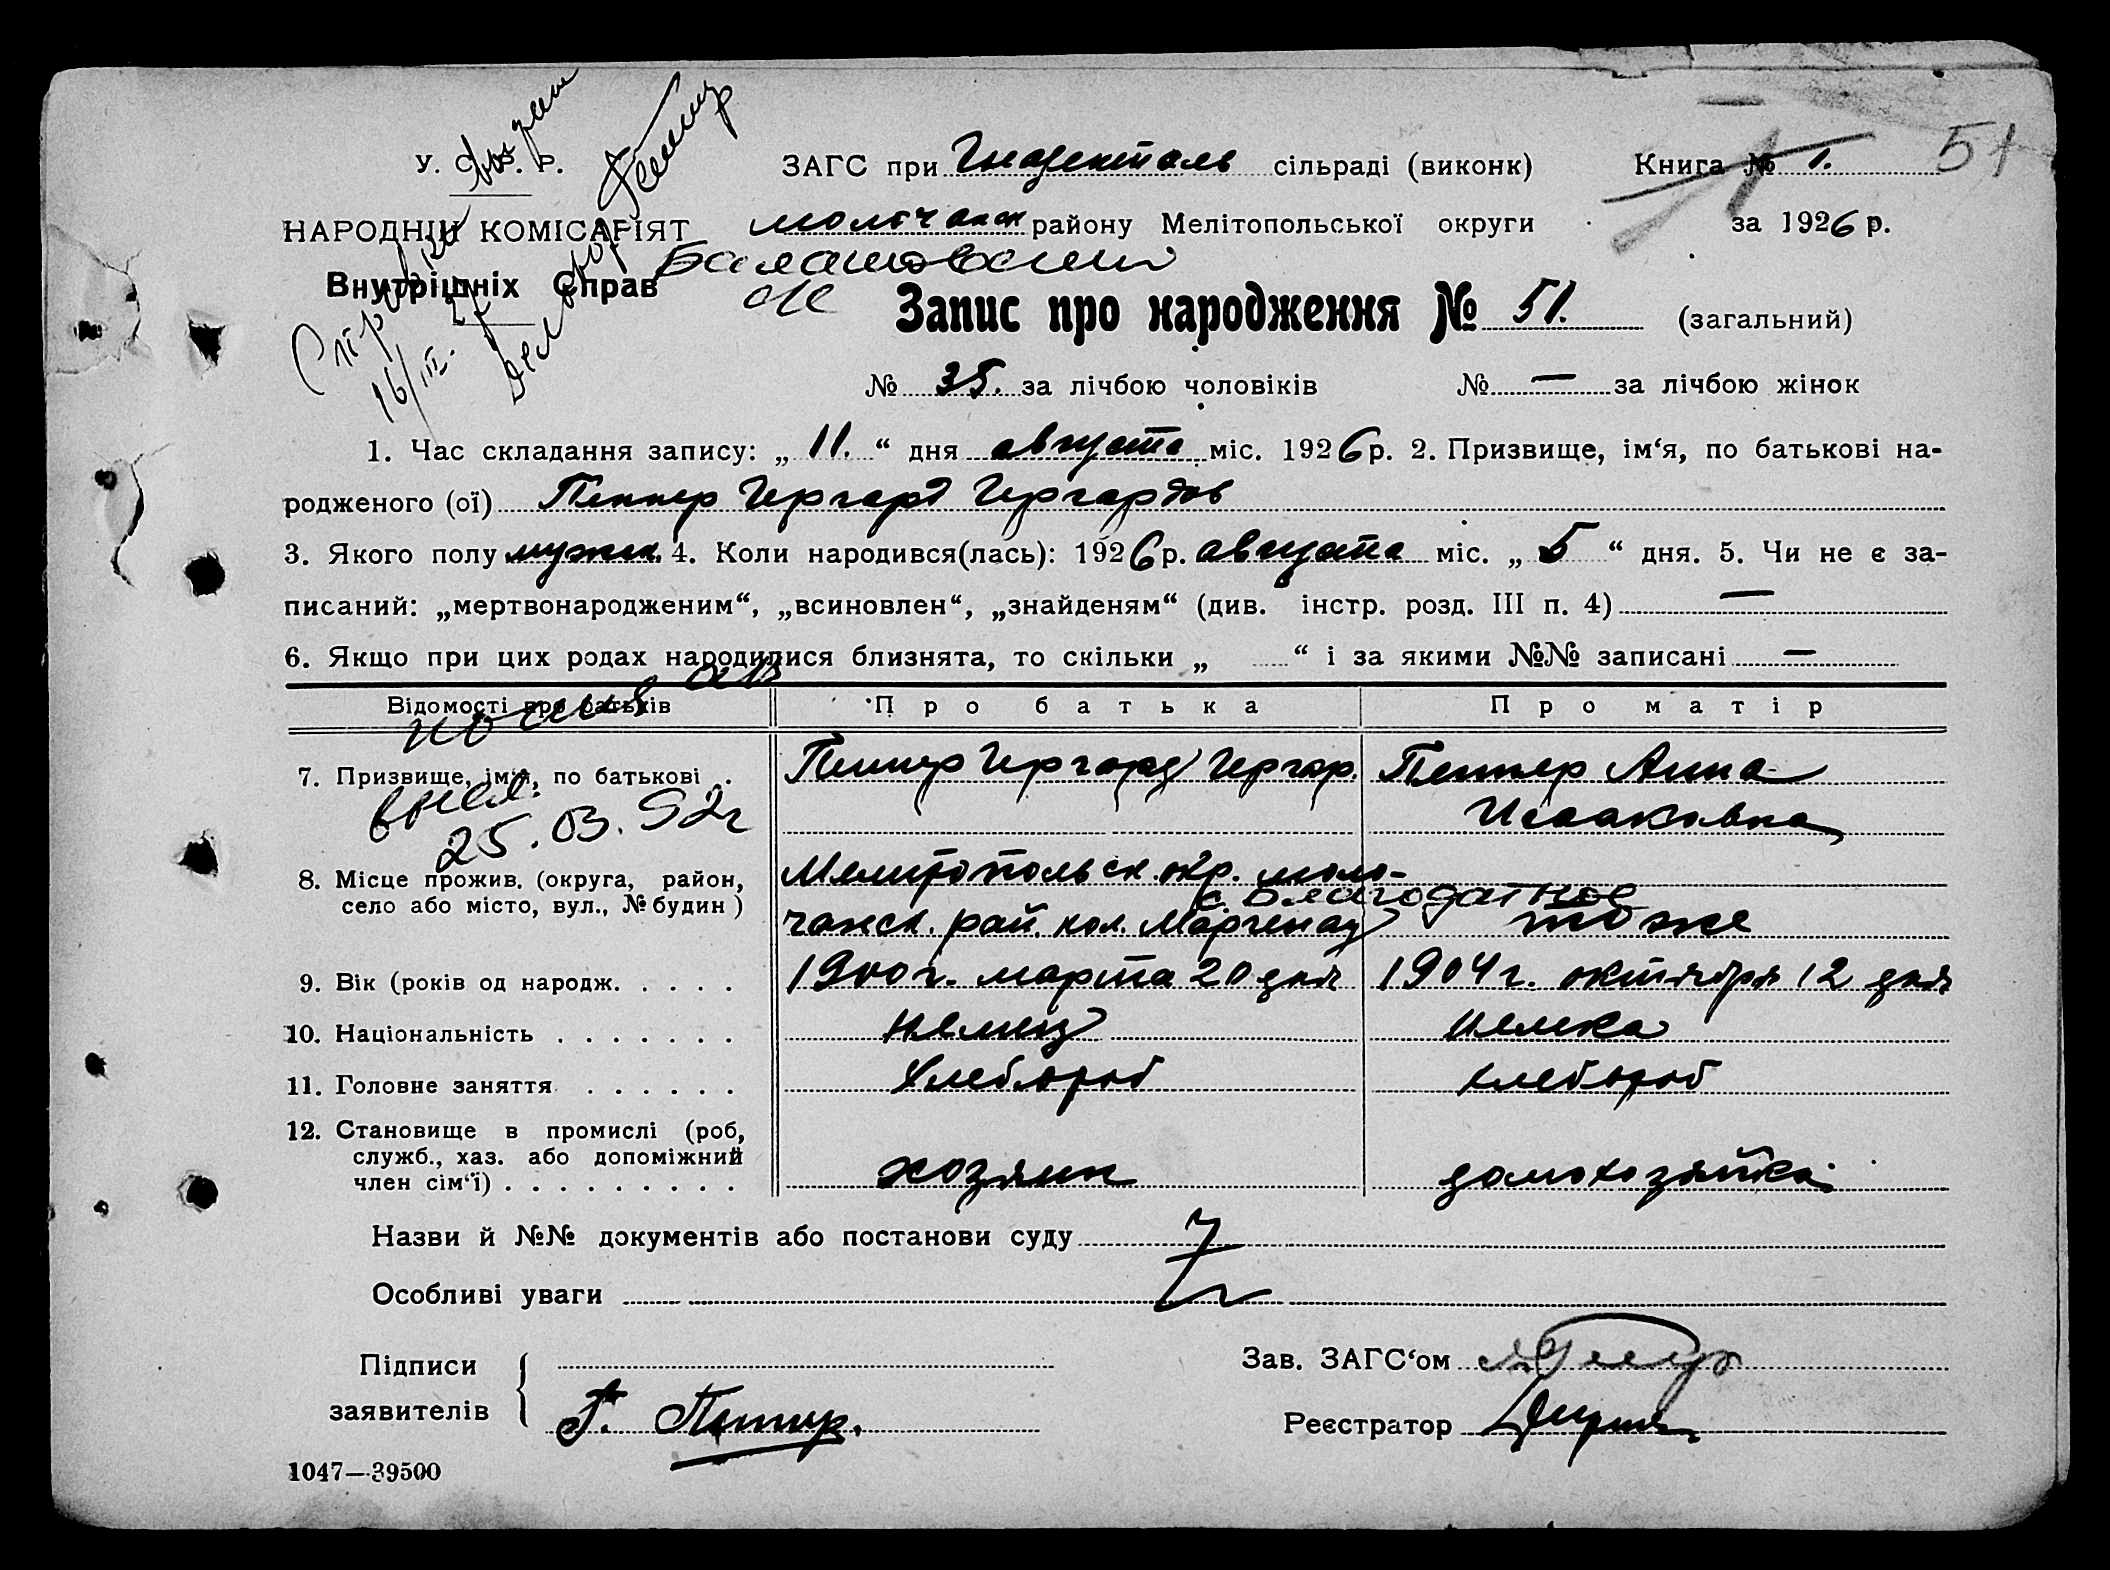 У. С. Р. Р.
ЗАГС при Гнаденталь сільраді (виконк)
Книга № 1. 51
НАРОДНІЙ КОМІСАРІЯТ
молочанск району Мелітопольської округи
за 1926 р.
Внутрішніх Справ
Запис про народження № 51. (загальний)
№ 35. за лічбою чоловіків № — за лічбою жінок
16/III.
1. Час складання запису: „ 11. “ дня августа міс. 1926 р. 2. Призвище, ім‘я, по батькові на-
родженого (ої) Петкер Гергард Гергардов
3. Якого полу мужск. 4. Коли народився(лась): 1926 р. августа міс. „ 5 “ дня. 5. Чи не є за-
писаний: „мертвонародженим“, „всиновлен“, „знайденям“ (див. інстр. розд. III п. 4) —
6. Якщо при цих родах народилися близнята, то скільки „ “ і за якими №№ записані —
Відомості про батьків Про батька Про матір
7. Призвище, ім‘я, по батькові . Петкер Гергард Гергар. Петкер Анна
Исааковна
25.03.92г
8. Місце прожив. (округа, район, Мелитопольск. окр. моло-
с. Благодатное
село або місто, вул., № будин) чанск. рай. кол. Маргенау тоже
9. Вік (років од народж. . . . . 1900 г. марта 20 дня 1904 г. октября 12 дня
10. Національність . . . . . . . немец немка
11. Головне заняття . . . . . . хлебороб хлебороб
12. Становище в промислі (роб,
служб., хаз. або допоміжний
член сім‘ї) . . . . . . . . . хозяин домохозяйка
Назви й №№ документів або постанови суду
Особливі уваги
Підписи
Зав. ЗАГС‘ом
заявителів Г. Петкер.
Реєстратор
1047—39500